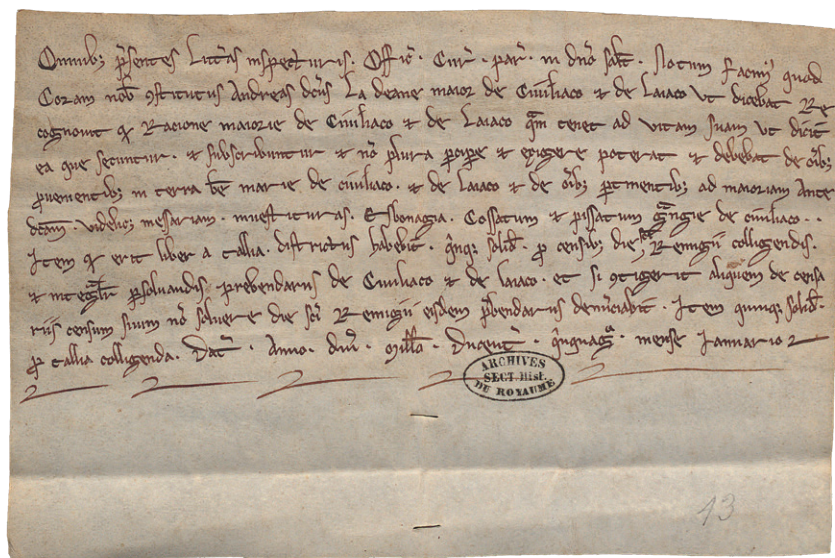 Omnibȝ p̃sentes Litt̃as inspecturis. Offic̃. Cur̃. par̃. in dño salt̃. Notum facimꝰ quod
Coram nob̃ ꝯstitutus Andreas dc̃us La deane maior de Civiliaco ⁊ de Laiaco Vt dicebat Re
cognovit qͣ Racione maiorie de Civiliaco ⁊ de Laiaco qͣm tenet ad vitam suam vt dicit
ea que secuntur. ⁊ subscribuntur ⁊ nõ plura ꝑcipe ⁊ exigere poterat ⁊ debebat de oĩbȝ
ꝓvenientibȝ in terra bẽ marie de civiliaco. ⁊ de Laiaco ⁊ de oĩbȝ ꝑtinentibȝ ad maioriam Ante
dcãm. videlicȝ mesariam. investituras. Et bonagia. Cossatum ⁊ pissatum gͣngie de civiliaco. .
Item qͣ erit liber a tallia. districtus habebit. qͥnqȝ solid̃. ꝓ censibȝ die sc̃i Remigii colligendis.
⁊ integͣlit̃ ꝑsolvandis prebendariis de Civiliaco ⁊ de laiaco. et si ꝯtigerit aliquem de censa
riis censum suum nõ solvere die sc̃i Remigii eisdem p̃bendariis denũciabit. Item quinqȝ solid̃.
ꝓ tallia colligenda. Dat̃. Anno. dñi. Mill̃o. Ducent̃. qͥnquagͣ. mense Ianuario
ARCHIVES
SECT. Hist.
DU ROYAUME
13